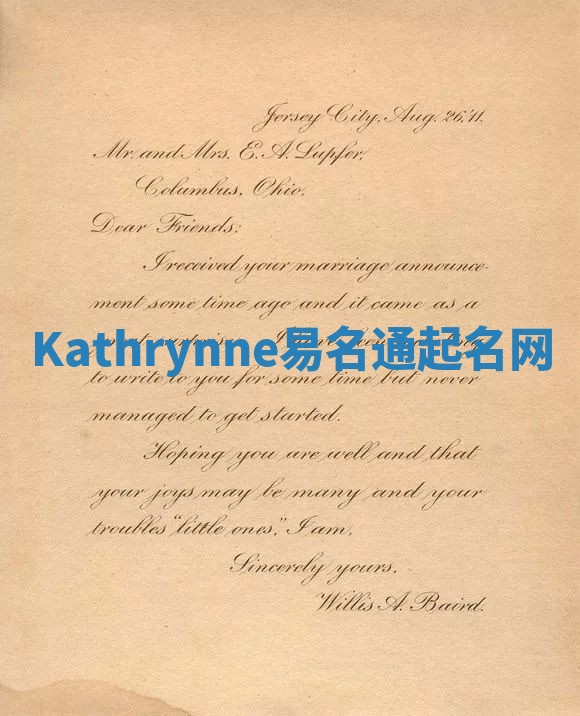 Jersey City, Aug. 26, '11.
Mr. and Mrs. E. A. Lupfer,
Columbus, Ohio.
Dear Friends:
I received your marriage announce-
ment some time ago and it came as a
Kathrynne易名通起名网
to write to you for some time but never
managed to get started.
Hoping you are well and that
your joys may be many and your
troubles "little ones," I am,
Sincerely yours,
Willis A. Baird.